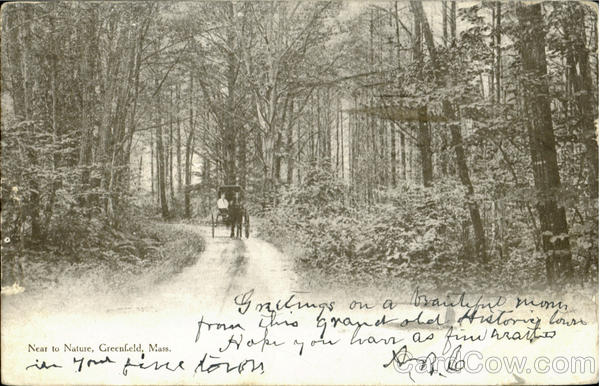 Greetings on a beautiful morn
from this Grand old Historic town
Hope you have as fine weather
Near to Nature, Greenfield, Mass.
in your fine town
H.B.C
CardCow.com